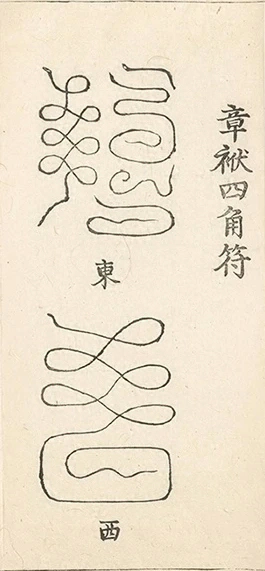 章袱四角符
東
西